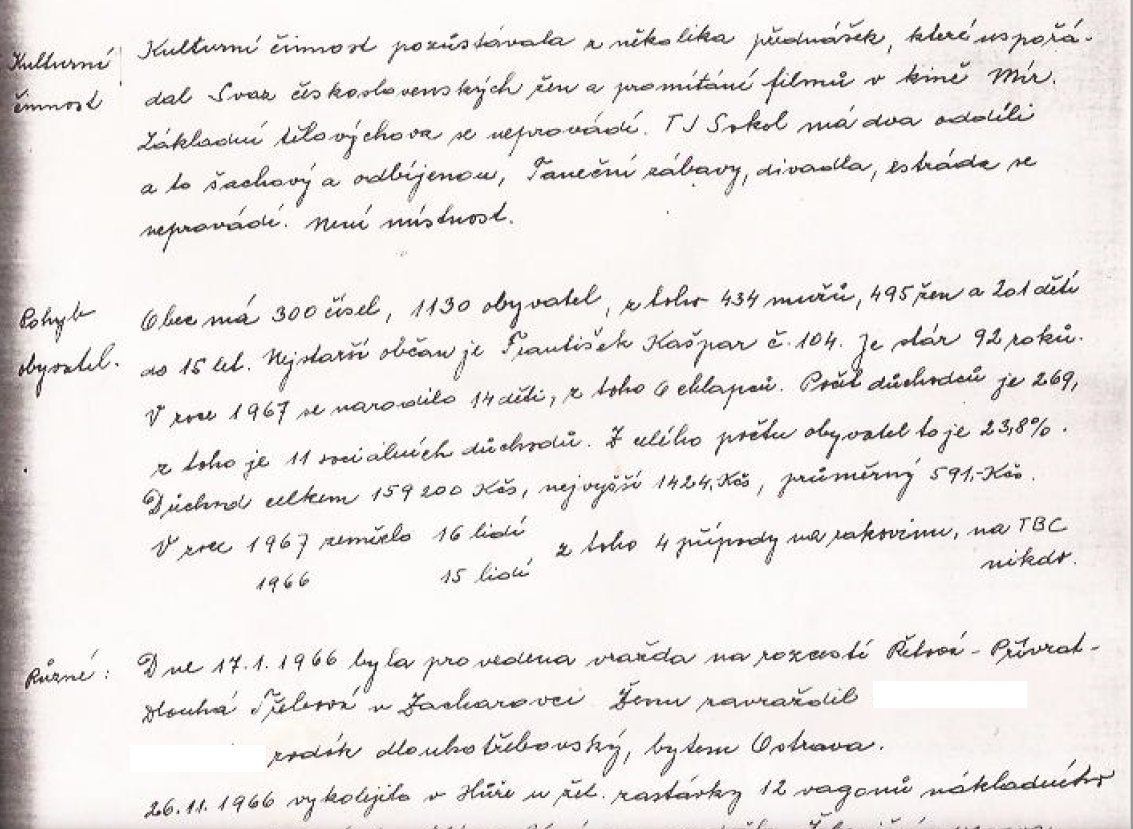 Kulturní
činnost
Kulturní činnost pozůstávala z několika přednášek, které uspořá-
dal Svaz československých žen a promítání filmů v kině Mír.
Základní tělovýchova se neprovádí. TJ Sokol má dva oddíli
a to šachový a odbíjenou, Taneční zábavy, divadla, estráda se
neprovádí. Není místnost.
Pohyb
obyvatel.
Obec má 300 čísel, 1130 obyvatel, z toho 434 mužů, 495 žen a 201 dětí
do 15 let. Nejstarší občan je František Kašpar č. 104. Je stár 92 roků.
V roce 1967 se narodilo 14 dětí, z toho 6 chlapců. Počet důchodců je 269,
z toho je 11 sociálních důchodů. Z celého počtu obyvatel to je 23,8%.
Důchod celkem 159 200 Kčs, nejvyšší 1424,Kčs, průměrný 591,-Kčs.
V roce 1967 zemřelo 16 lidí
1966 15 lidí
z toho 4 případy na rakovinu, na TBC
nikdo.
Různé:
Dne 17.1.1966 byla provedena vražda na rozcestí Řetová - Přívrat -
Dlouhá Třebová v Zacharovci Ženu zavraždil
rodák dlouhotřebovský, bytem Ostrava.
26.11.1966 vykolejilo v Hůře u žel. zastávky 12 vagonů nákladního